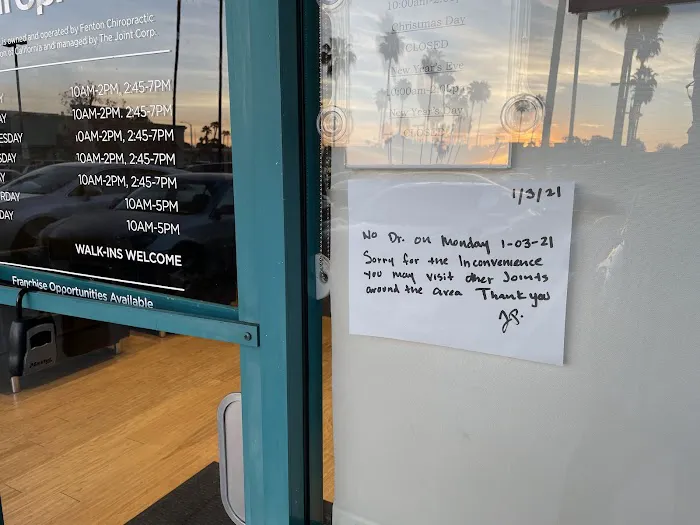 is owned and operated by Fenton Chiropractic
of California and managed by The Joint Corp.
10AM-2PM, 2:45-7PM
10AM-2PM, 2:45-7PM
10AM-2PM, 2:45-7PM
10AM-2PM, 2:45-7PM
10AM-2PM, 2:45-7PM
10AM-5PM
10AM-5PM
WALK-INS WELCOME
Franchise Opportunities Available
Christmas Day
CLOSED
New Year's Eve
New Year's Day
CLOSED
1/3/21
No Dr. on Monday 1-03-21
Sorry for the Inconvenience
you may visit other Joints
around the area Thank you